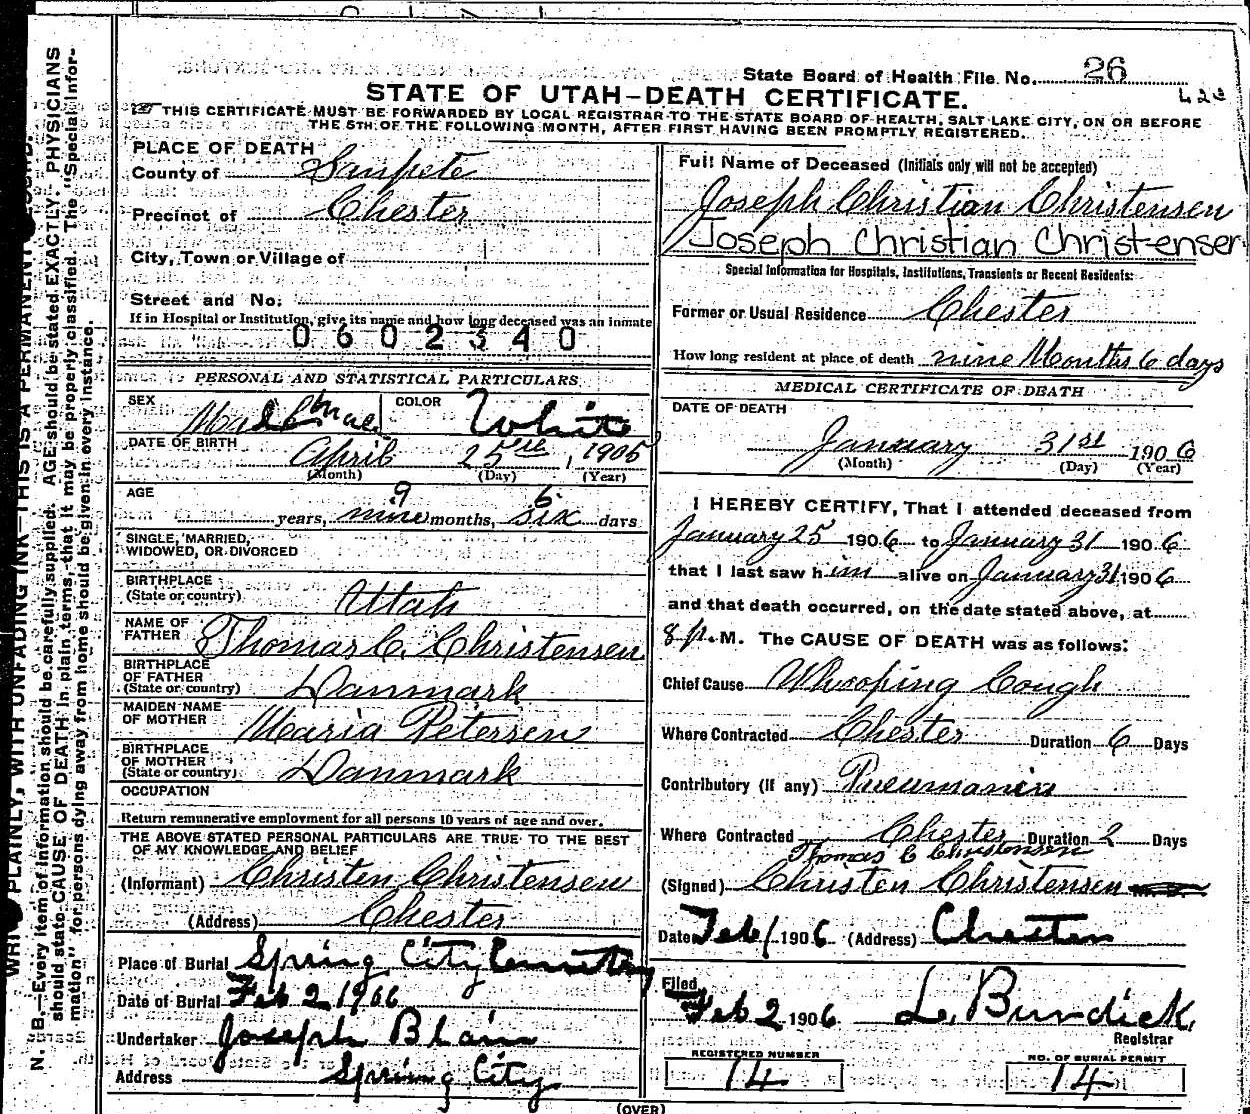 State Board of Health File No. 26
STATE OF UTAH—DEATH CERTIFICATE.
THIS CERTIFICATE MUST BE FORWARDED BY LOCAL REGISTRAR TO THE STATE BOARD OF HEALTH, SALT LAKE CITY, ON OR BEFORE
THE 5TH OF THE FOLLOWING MONTH, AFTER FIRST HAVING BEEN PROMPTLY REGISTERED.
PLACE OF DEATH
County of Sanpete
Precinct of Chester
City, Town or Village of
Street and No.
If in Hospital or Institution, give its name and how long deceased was an inmate
0602340
PERSONAL AND STATISTICAL PARTICULARS
SEX Male COLOR White
DATE OF BIRTH April 25th, 1905
(Month) (Day) (Year)
AGE 9 6
years, nine months, six days
SINGLE, MARRIED,
WIDOWED, OR DIVORCED
BIRTHPLACE
(State or country) Utah
NAME OF
FATHER Thomas C. Christensen
BIRTHPLACE
OF FATHER
(State or country) Danmark
MAIDEN NAME
OF MOTHER Maria Petersen
BIRTHPLACE
OF MOTHER
(State or country) Danmark
OCCUPATION
Return remunerative employment for all persons 10 years of age and over.
THE ABOVE STATED PERSONAL PARTICULARS ARE TRUE TO THE BEST
OF MY KNOWLEDGE AND BELIEF
(Informant) Christen Christensen
(Address) Chester
Place of Burial Spring City Cemetery
Date of Burial Feb 2 1906
Undertaker Joseph Blain
Address Spring City
Full Name of Deceased (Initials only will not be accepted)
Joseph Christian Christensen
Joseph Christian Christensen
Special Information for Hospitals, Institutions, Transients or Recent Residents:
Former or Usual Residence Chester
How long resident at place of death nine Months 6 days
MEDICAL CERTIFICATE OF DEATH
DATE OF DEATH
January 31st 1906
(Month) (Day) (Year)
I HEREBY CERTIFY, That I attended deceased from
January 25 1906 to January 31 1906
that I last saw him alive on January 31 1906
and that death occurred, on the date stated above, at
8 p. M. The CAUSE OF DEATH was as follows:
Chief Cause Whooping Cough
Where Contracted Chester Duration 6 Days
Contributory (if any) Pneumania
Where Contracted Chester Duration 2 Days
Thomas C Christensen
(Signed) Christen Christensen
Date Feb 1 1906 (Address) Chester
Filed
Feb 2 1906 L. Burdick
Registrar
REGISTERED NUMBER
14
NO. OF BURIAL PERMIT
14
(OVER)
PLAINLY, WITH UNFADING INK—THIS IS A PERMANENT
N. B.—Every item of information should be carefully supplied. AGE should be stated EXACTLY. PHYSICIANS
should state CAUSE OF DEATH in plain terms, that it may be properly classified. The "Special Infor-
mation" for persons dying away from home should be given in every instance.